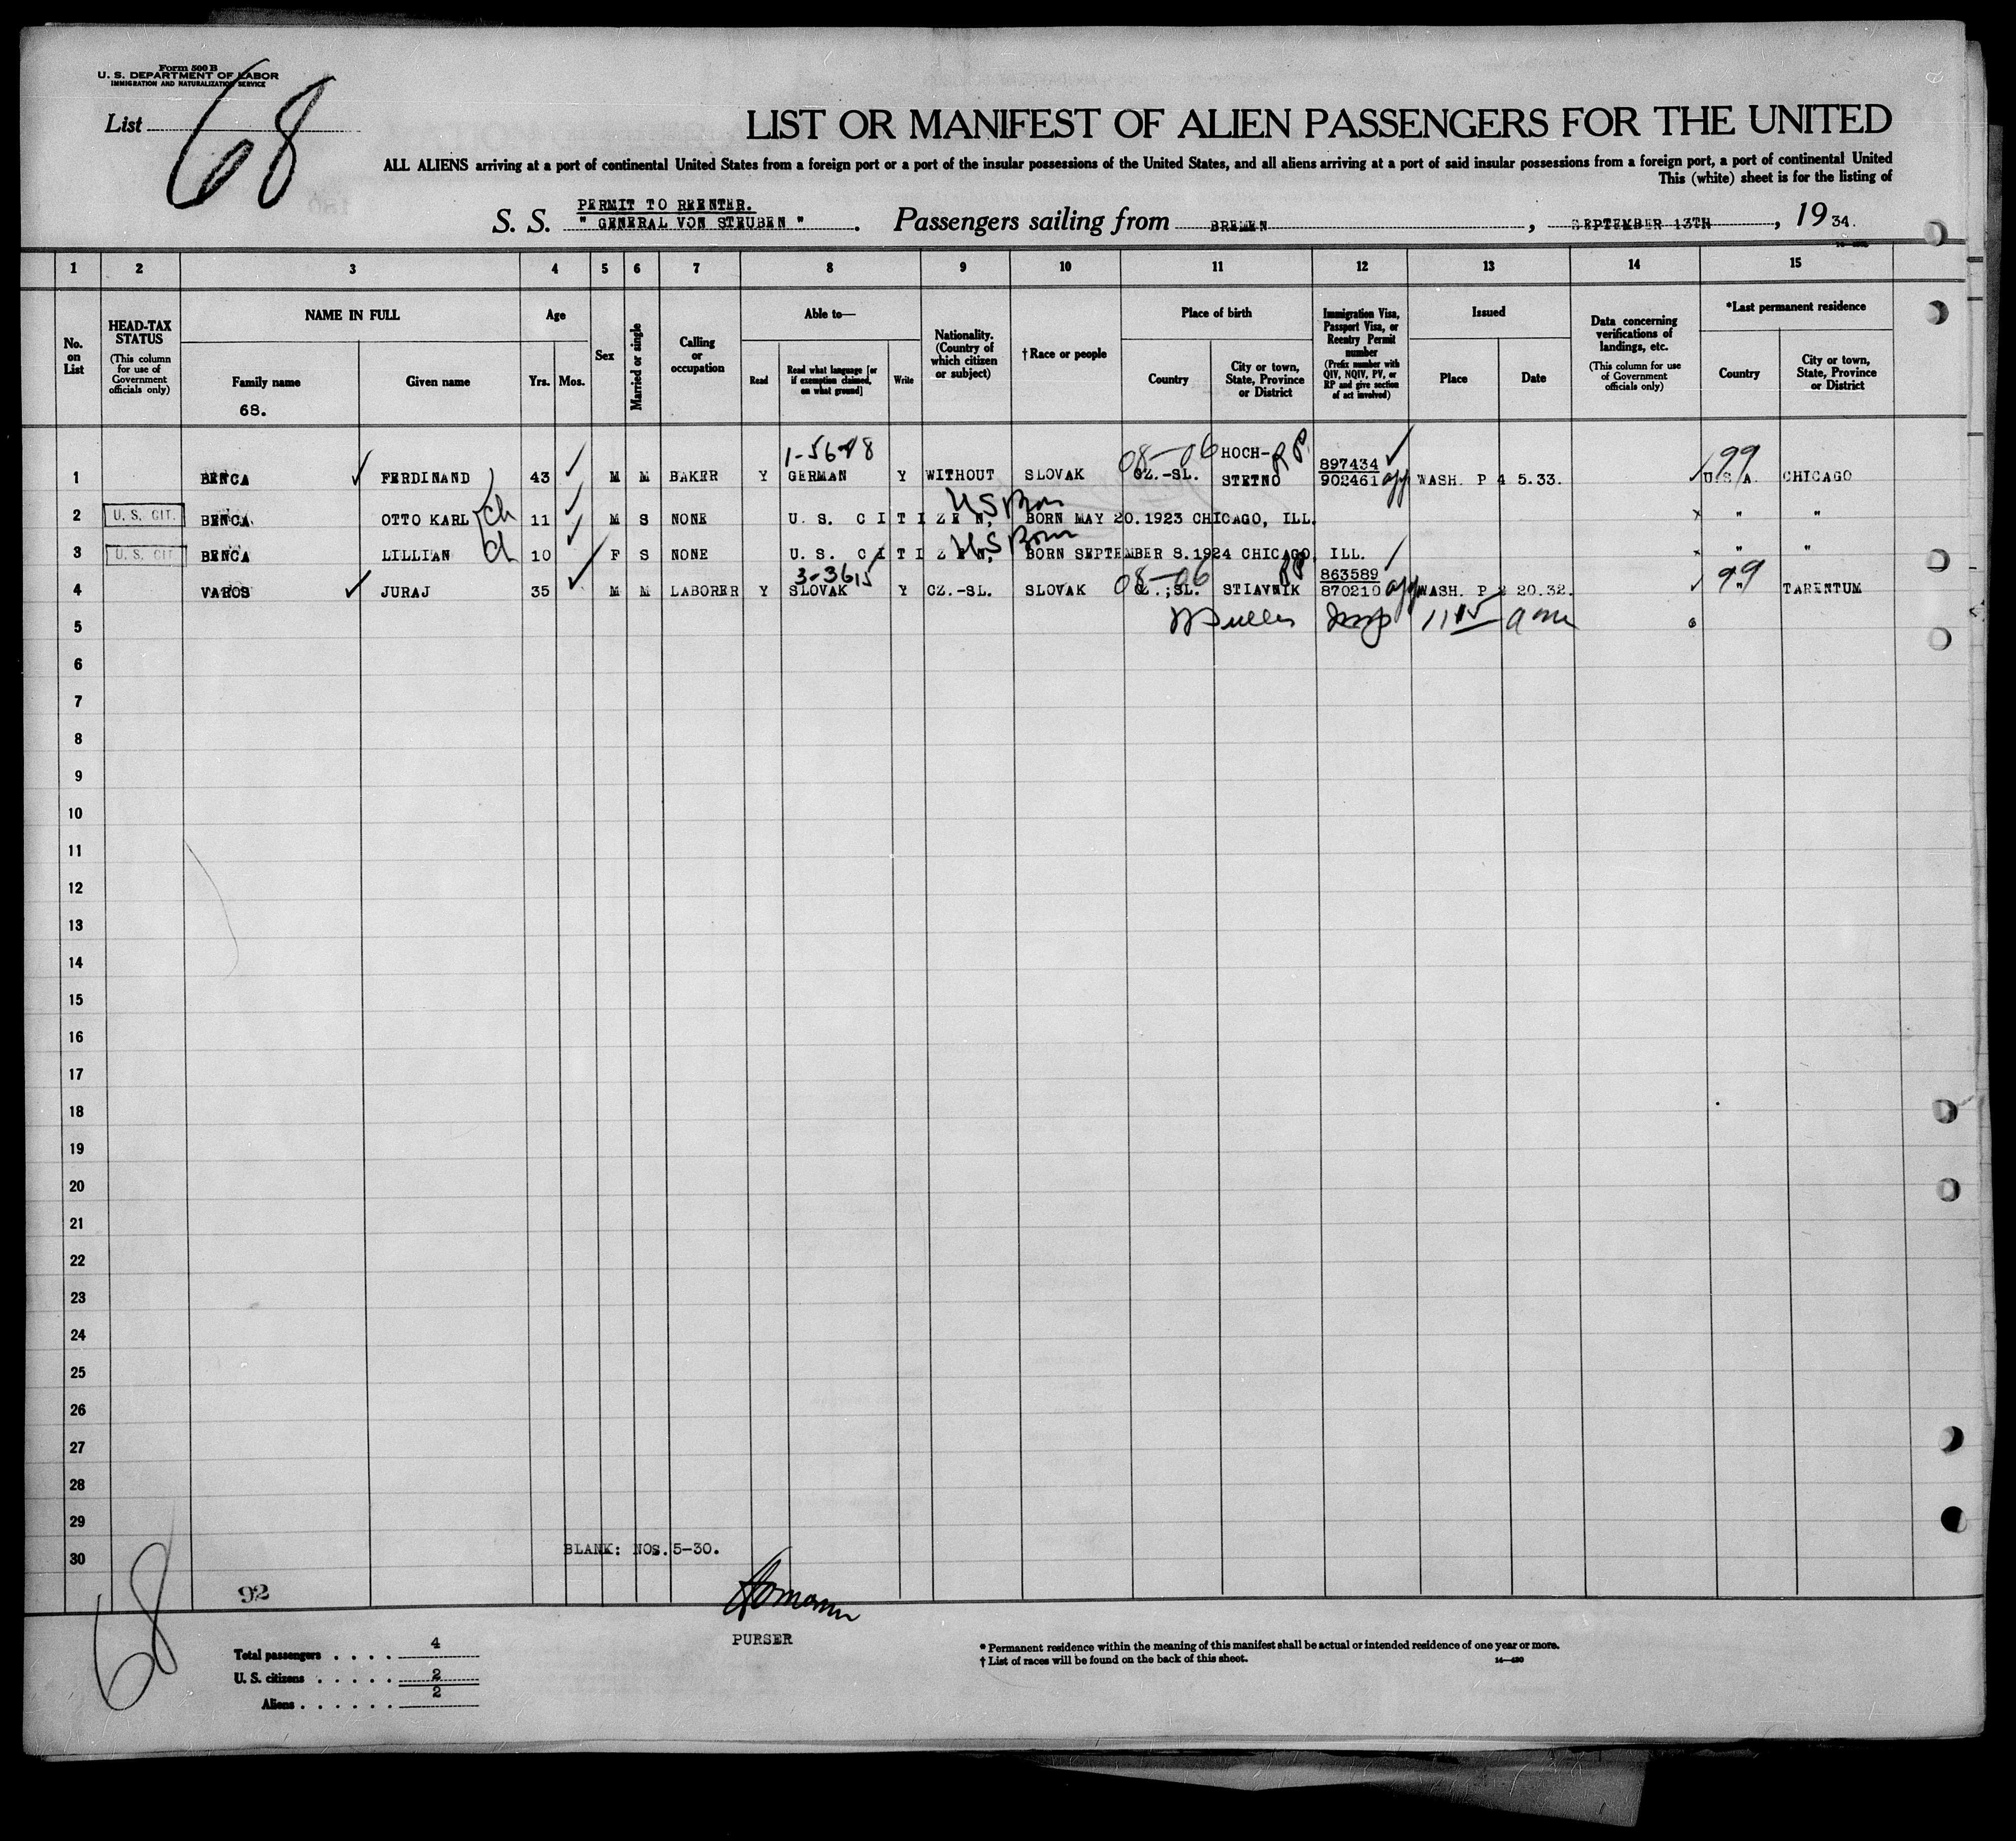 Form 500 B
U. S. DEPARTMENT OF LABOR
IMMIGRATION AND NATURALIZATION SERVICE
List 68
LIST OR MANIFEST OF ALIEN PASSENGERS FOR THE UNITED
ALL ALIENS arriving at a port of continental United States from a foreign port or a port of the insular possessions of the United States, and all aliens arriving at a port of said insular possessions from a foreign port, a port of continental United
This (white) sheet is for the listing of
PERMIT TO REENTER.
S. S. " GENERAL VON STEUBEN ". Passengers sailing from BREMEN, SEPTEMBER 13TH, 19 34.
1 2 3 4 5 6 7 8 9 10 11 12 13 14 15
No. on List
HEAD-TAX STATUS
(This column for use of Government officials only)
NAME IN FULL
Family name
68.
Given name
Age
Yrs. Mos.
Sex
Married or single
Calling or occupation
Able to—
Read
Read what language [or if exemption claimed, on what ground]
Write
Nationality. (Country of which citizen or subject)
†Race or people
Place of birth
Country
City or town, State, Province or District
Immigration Visa, Passport Visa, or Reentry Permit number
(Prefix number with QIV, NQIV, PV, or RP and give section of act involved)
Issued
Place
Date
Data concerning verifications of landings, etc.
(This column for use of Government officials only)
*Last permanent residence
Country
City or town, State, Province or District
08-06 HOCH- RP 897434 99
1 BENCA FERDINAND 43 M M BAKER Y GERMAN Y WITHOUT SLOVAK CZ.-SL. STETNO 902461 WASH. P 4 5.33. U.S.A. CHICAGO
US Born
2 U. S. CIT. BENCA OTTO KARL ch 11 M S NONE U. S. CITIZEN, BORN MAY 20.1923 CHICAGO, ILL. " "
US Born
3 U. S. CIT. BENCA LILLIAN ch 10 F S NONE U. S. CITIZEN, BORN SEPTEMBER 8.1924 CHICAGO, ILL. " "
3-3615 08-06 RP 863589 99
4 VAROS JURAJ 35 M M LABORER Y SLOVAK Y CZ.-SL. SLOVAK CZ.;SL. STIAVNIK 870210 WASH. P 2 20.32. " TARENTUM
5 Insp 11 15 am
6
7
8
9
10
11
12
13
14
15
16
17
18
19
20
21
22
23
24
25
26
27
28
29
30
BLANK: NOS. 5-30.
92
68
PURSER
Total passengers . . . . 4
U. S. citizens . . . . . 2
Aliens . . . . . . 2
* Permanent residence within the meaning of this manifest shall be actual or intended residence of one year or more.
† List of races will be found on the back of this sheet.
14—430